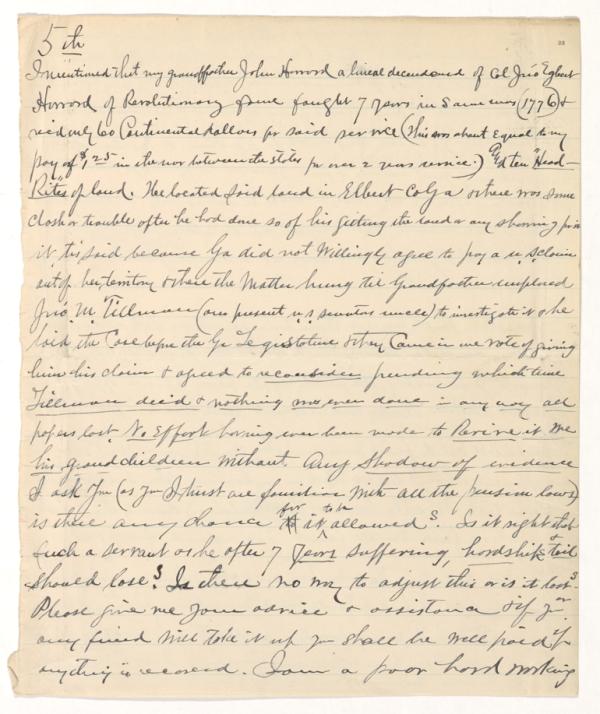 5th
I mentioned that my grandfather John Howard a lineal decendend of Col Jno Egbert
Howard of Revolutionary fame fought 7 years in same war (1776) &
recd only 60 Continental dollars for said service (This was about Equal to my
pay of $1.25 in the war between the states for over 2 years service.) and ten "Head-
Rites of land. He located said land in Elbert Co Ga & there was some
clash or trouble after he had done so of his getting the land or any showing for
it, tis said because Ga did not Willingly agree to pay a U,S, claim
out of her territory & there the Matter hung til Grandfather employed
Jno, M, Tillman (our present U,S senators uncle) to investigate it & he
laid the Case before the Ga Legislature & they Came in one vote of giving
him his claim & agreed to reconsider pending which time
Tillman died & nothing was ever done in any way all
papers lost. No Effort having ever been made to Revive it We
his grandchildren without any Shadow of evidence
I ask you (as you I trust are familiar with all the pension laws)
is there any chance for it to be allowed? Is it right that
such a servant as he after 7 years suffering, hardship & toil
should lose? Is there no way to adjust this or is it lost?
Please give me your advice & assistance & if you or
any friend will take it up you shall be well paid if
anything is recovered. I am a poor hard working